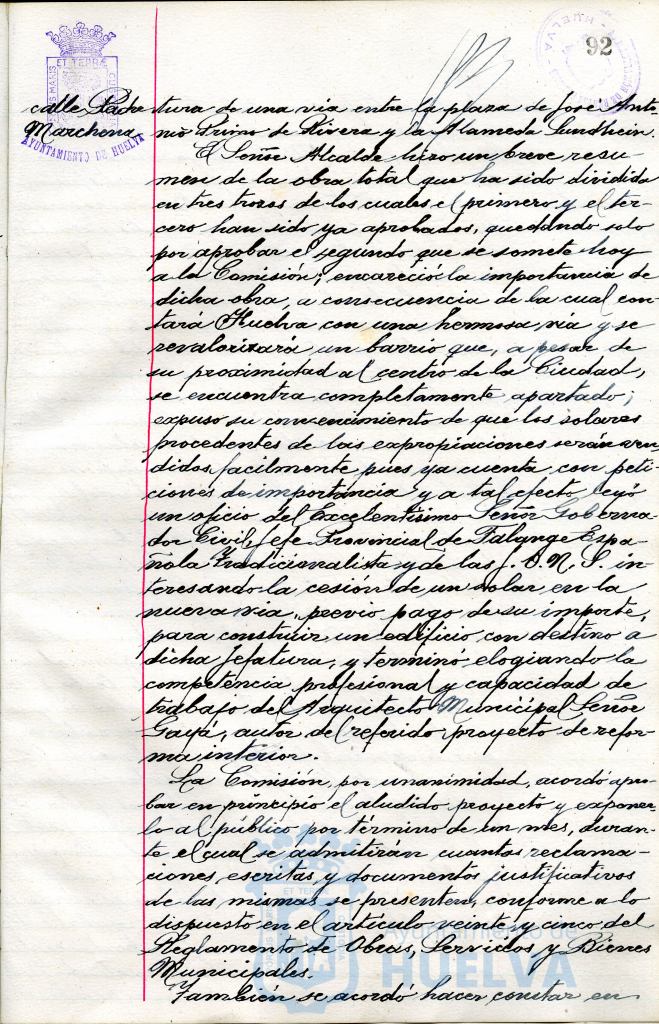 92
calle Padre
Marchena
AYUNTAMIENTO DE HUELVA
ET TERRÆ
HUELVA
tura de una via entre la plaza de José Anto-
nio Primo de Rivera y la Alameda Sundheim.
El Señor Alcalde hizo un breve resu-
men de la obra total que ha sido dividida
en tres trozos de los cuales el primero y el ter-
cero han sido ya aprobados, quedando solo
por aprobar el segundo que se somete hoy
a la Comisión; encareció la importancia de
dicha obra, a consecuencia de la cual con-
tará Huelva con una hermosa via y se
revalorizará un barrio que, a pesar de
su proximidad al centro de la Ciudad,
se encuentra completamente apartado;
expuso su convencimiento de que los solares
procedentes de las expropiaciones serán ven-
didos facilmente pues ya cuenta con peti-
ciones de importancia y a tal efecto leyó
un oficio del Excelentísimo Señor Goberna-
dor Civil, Jefe Provincial de Falange Espa-
ñola Tradicionalista y de las J. O. N. S. in-
teresando la cesión de un solar en la
nueva via, previo pago de su importe,
para construir un edificio con destino a
dicha Jefatura, y terminó elogiando la
competencia profesional y capacidad de
trabajo del Arquitecto Municipal Señor
Gayá, autor del referido proyecto de refor-
ma interior.
La Comisión, por unanimidad, acordó apro-
bar en principio el aludido proyecto y exponer-
lo al público por término de un mes, duran-
te el cual se admitirán cuantas reclama-
ciones escritas y documentos justificativos
de las mismas se presenten, conforme a lo
dispuesto en el artículo veinte y cinco del
Reglamento de Obras, Servicios y Bienes
Municipales.
También se acordó hacer constar en
ET TERRÆ
Ayuntamiento de
HUELVA